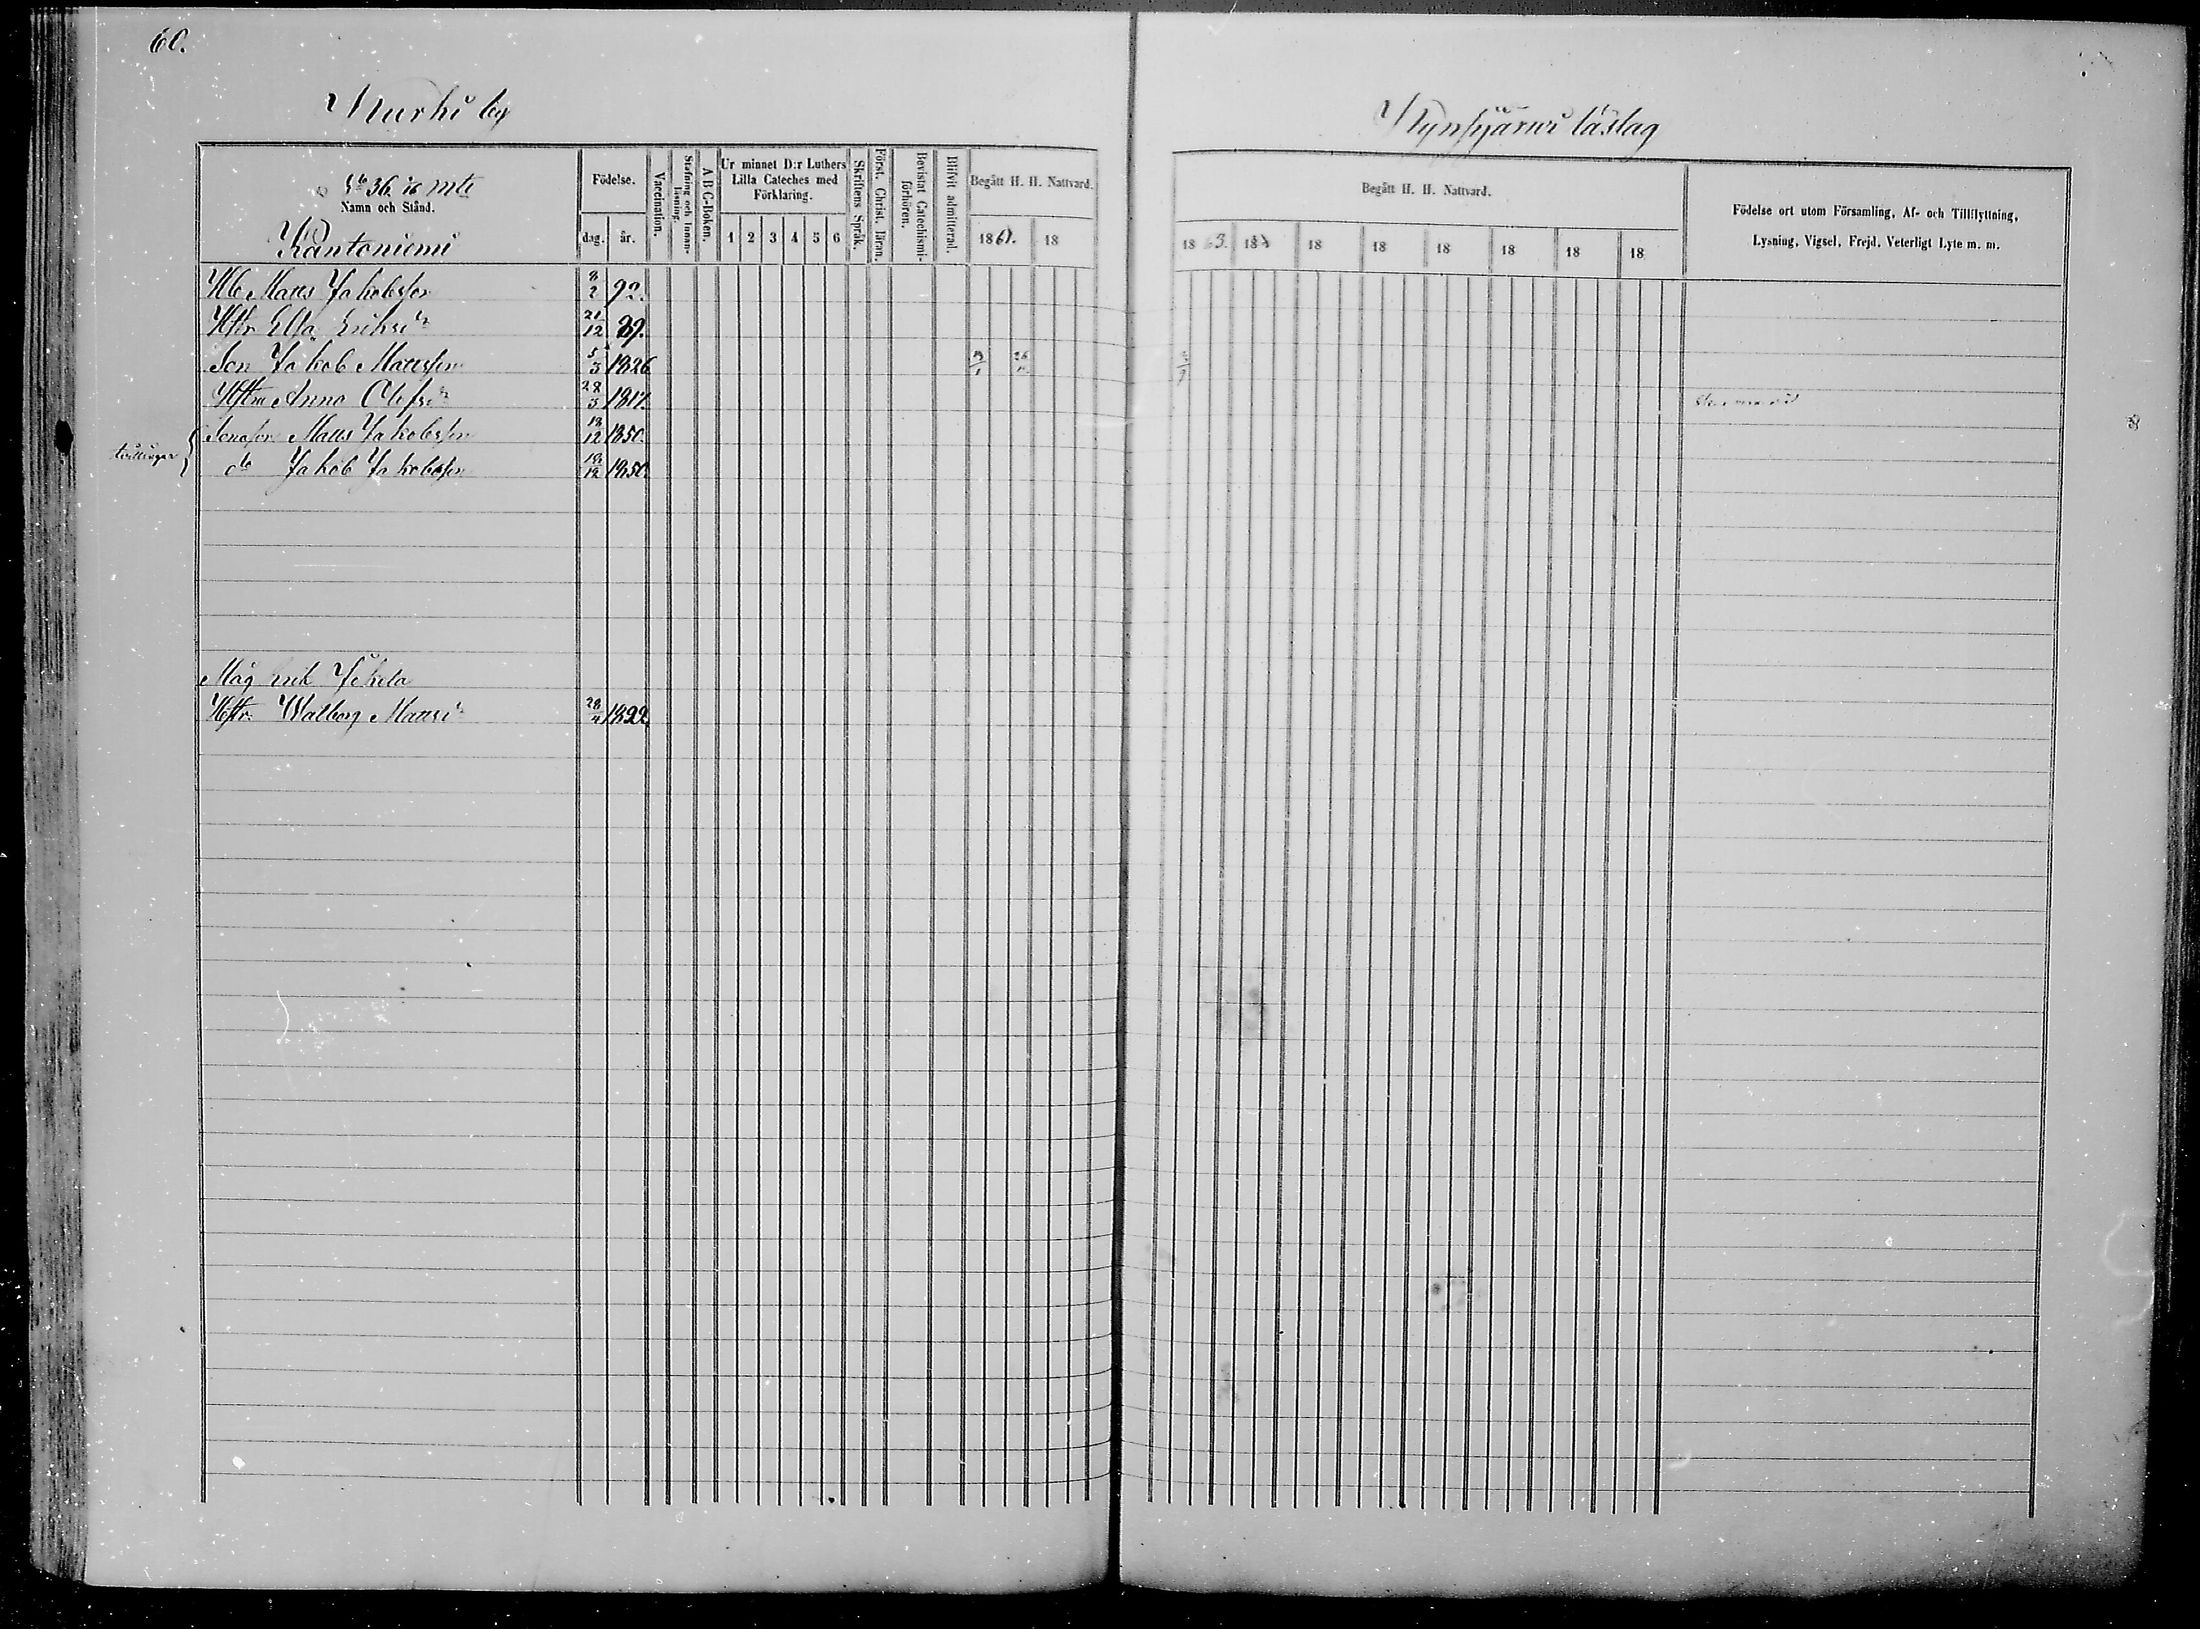 60.
Murhi by
N:o 36. 1/6 mtl
Namn och Stånd.
Kantoniemi
Födelse.
dag. år.
Vaccination.
Stafning och Innan-läsning.
A B C-Boken.
Ur minnet D:r Luthers Lilla Cateches med Förklaring.
1 2 3 4 5 6
Skriftens Språk.
Först. Christ. läran.
Bevistat Catechismi-förhören.
Blifvit admitterad.
Begått H. H. Nattvard.
18 18
Matts Jakobsson 8/2 92.
Hstr Ella Eriksdr 21/12 89.
Son Jakob Mattsson 5/3 1826
Hstru Anna Olofsdr 28/3 1817
tvillingar
Sonason Matts Jakobsson 18/12 1850.
do Jakob Jakobsson 18/12 1850.
Måg Erik
Hstr. Walborg Mattsdr 28/4 1822
läslag
Begått H. H. Nattvard.
1863. 18 18 18 18 18 18 18
Födelse ort utom Församling, Af- och Tillflyttning,
Lysning, Vigsel, Frejd, Veterligt Lyte m. m.